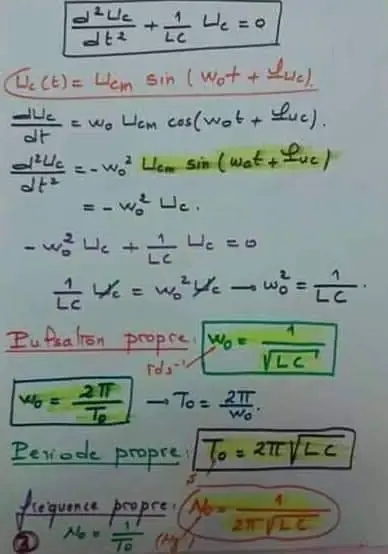 d²Uc/dt² + 1/LC Uc = 0
Uc(t) = Ucm sin (w₀t + φuc).
dUc/dt = w₀ Ucm cos(w₀t + φuc).
d²Uc/dt² = -w₀² Ucm sin (w₀t + φuc)
= -w₀² Uc.
-w₀² Uc + 1/LC Uc = 0
1/LC Uc = w₀² Uc → w₀² = 1/LC.
Pulsation propre: w₀ = 1/√LC
rds⁻¹
w₀ = 2π/T₀ → T₀ = 2π/w₀.
Periode propre: T₀ = 2π√LC
s
frequence propre: N₀ = 1/2π√LC
② N₀ = 1/T₀ (Hz)